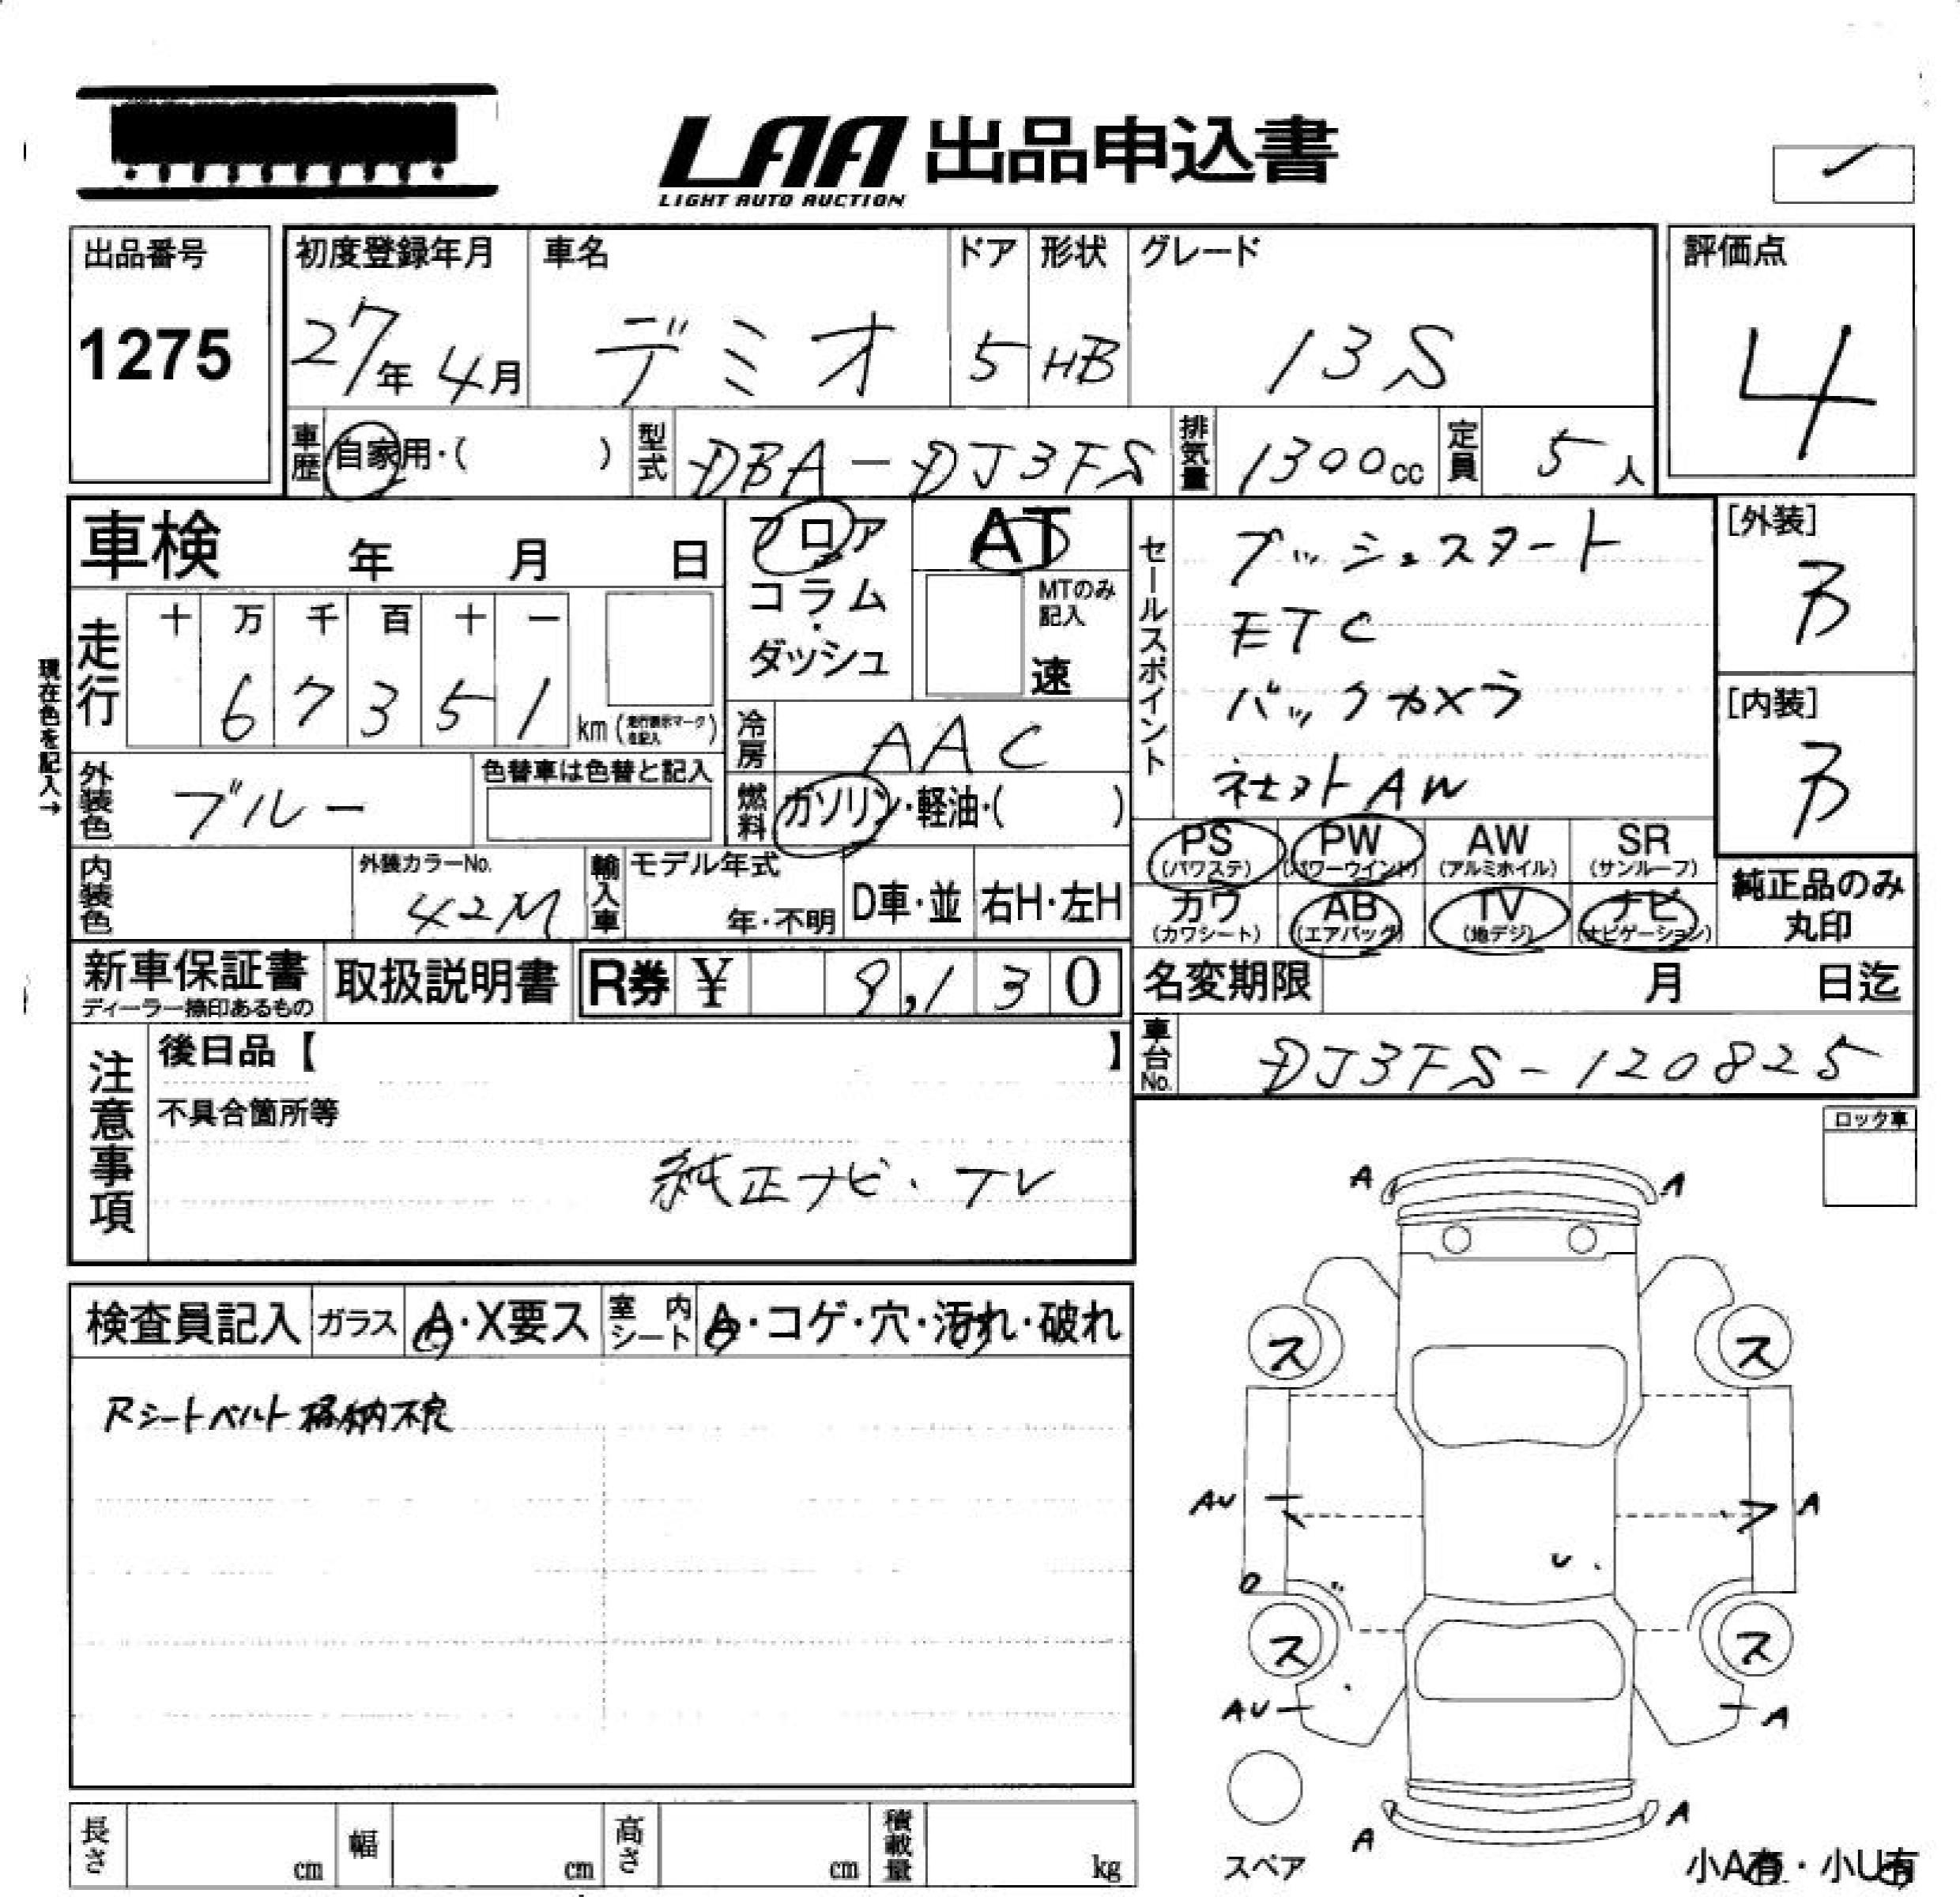 LAA 出品申込書
LIGHT AUTO AUCTION
出品番号
1275
初度登録年月
27年 4月
車名
デミオ
ドア
5
形状
HB
グレード
13S
評価点
4
車歴 自家用・( )
型式 DBA-DJ3FS
排気量 1300cc
定員 5人
車検 年 月 日
フロア
コラム
・
ダッシュ
AT
MTのみ
記入
速
セールスポイント
プッシュスタート
ETC
バックカメラ
社外AW
[外装]
B
[内装]
B
現在色を記入→
走行
十 万 千 百 十 一
6 7 3 5 1
km
冷房 AAC
外装色 ブルー
色替車は色替と記入
燃料 ガソリン・軽油・( )
PS (パワステ)
PW (パワーウインド)
AW (アルミホイル)
SR (サンルーフ)
カワ (カワシート)
AB (エアバッグ)
TV (地デジ)
ナビ (ナビゲーション)
純正品のみ
丸印
内装色
外装カラーNo.
42M
輸入車
モデル年式
年・不明
D車・並
右H・左H
新車保証書
ディーラー捺印あるもの
取扱説明書
R券 ¥ 9,130
名変期限 月 日迄
車台No. DJ3FS-120825
注意事項
後日品【 】
不具合箇所等
純正ナビ・TV
ロック車
検査員記入
ガラス A・X要ス
室内シート A・コゲ・穴・汚れ・破れ
Rシートベルト格納不良
A A
ス ス
AU A
U
ス ス
AU A
A A
スペア
小A有・小U有
長さ cm
幅 cm
高さ cm
積載量 kg